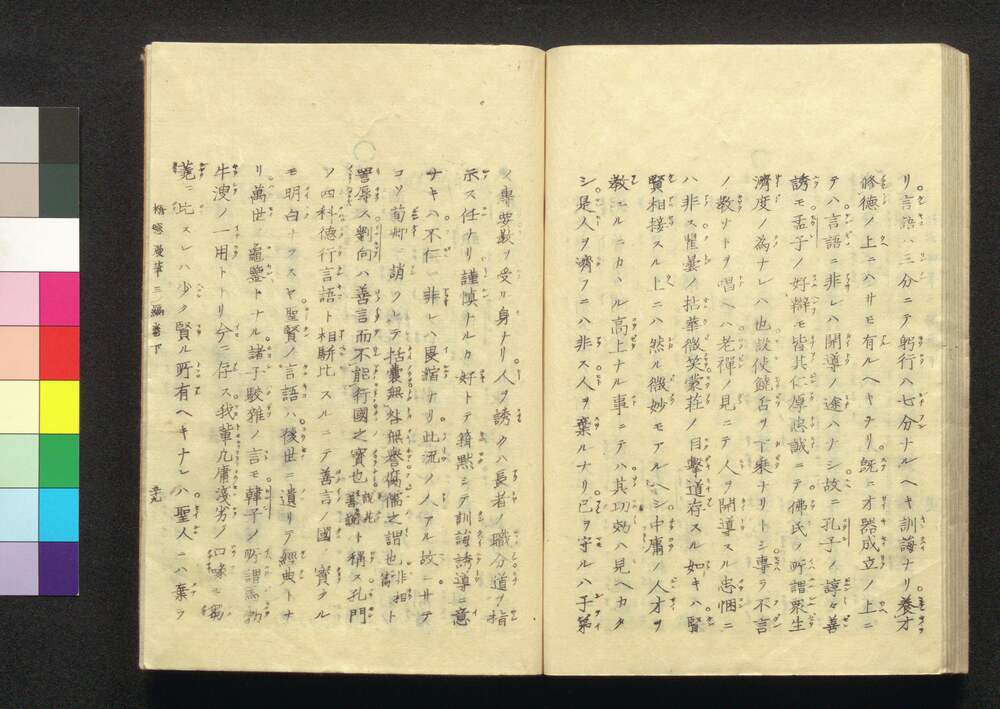 リ言語ハ三分ニテ躬行ハ七分ナルヘキ訓誨ナリ養才
修德ノ上ニハサモ有ルヘキヿナリ既ニオ器成立ノ上ニ
テハ言語ニ非レハ開導ノ途ハナシ故ニ孔子ノ諄々善
誘モ孟子ノ好辯モ皆其仁厚忠誠ニテ佛氏ノ所謂衆生
濟度ノ為ナレハ也設使饒舌ヲ下乘ナリトシ專ラ不言
ノ教リトヲ唱ヘハ老禪ノ見ニテ人ヲ開導スル忠悃ニ
ハ非ス瞿曇ノ拈華微笑蒙莊ノ目擊道存スル如キハ賢
賢相接スル上ニハ然ル微妙モアルヘシ中庸ノ人才ヲ
教ユルニカヽル高上ナル事ニテハ其功效ハ見ヘカタ
シ是人ヲ濟フニハ非ス人ヲ棄ルナリ已ヲ守ルハ子第
ノ專要教ヲ受ル身ナリ人ヲ誘クハ長者ノ職分道ヲ指
示ス任ナリ謹慎ナルカ好トテ箝默ニテ訓誨誘導ニ意
ナキハ不仁ニ非レハ畏縮ナリ此流ノ人アル故ニサテ
コソ荀卿ノ誚ツレテ括囊無咎無譽腐儒之謂也非相ト
詈辱ス劉向ハ善言而不能行國之寶也說苑善說ト稱ス孔門
ノ四科德行言語ト相駢比スルニテ善言ノ國ノ寶タル
モ明白ナラスヤ聖賢ノ言語ハ後世ニ遺リテ經典トナ
リ萬世ノ龜鑒トナル諸子駁雜ノ言モ韓子ノ所謂馬勃
牛溲ノ一用トナリ今ニ存ス我輩凡庸淺劣ノ口喙モ芻
蕘ニ比スレハ少ク賢ル所有ヘキナレハ聖人ニハ棄ヲ
梧窓漫筆三編巻下